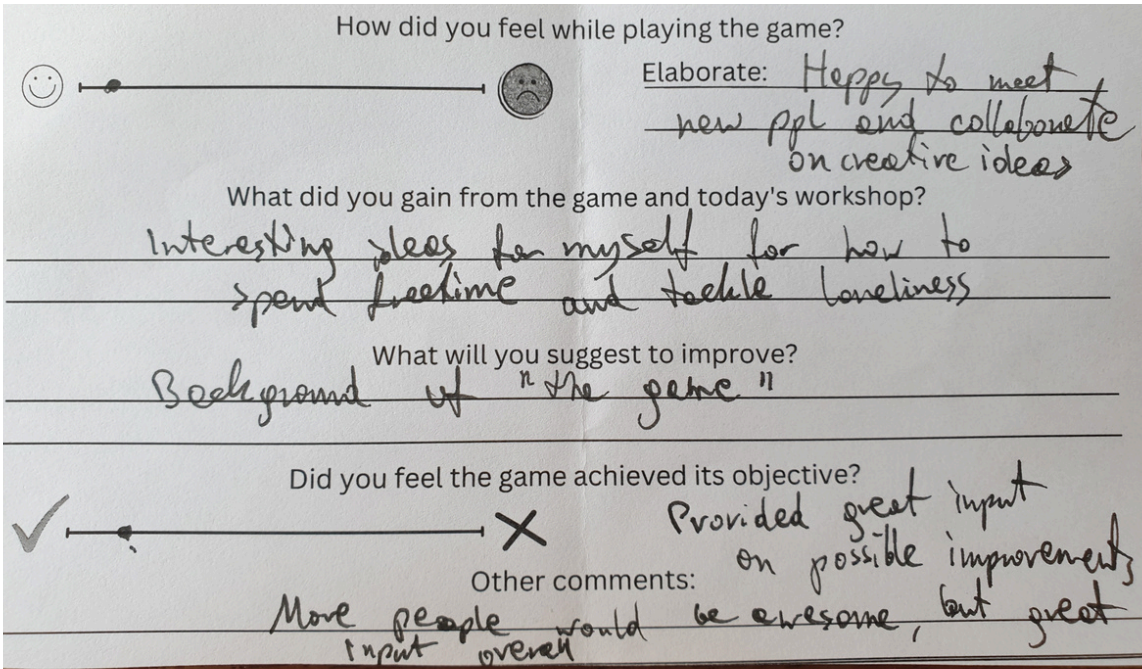 How did you feel while playing the game?
Elaborate: Happy to meet
new ppl and collaborate
on creative ideas
What did you gain from the game and today's workshop?
Interesting ideas for myself for how to
spend freetime and tackle loneliness
What will you suggest to improve?
Background of "the game"
Did you feel the game achieved its objective?
Provided great input
on possible improvements
Other comments:
More people would be awesome, but great
input overall